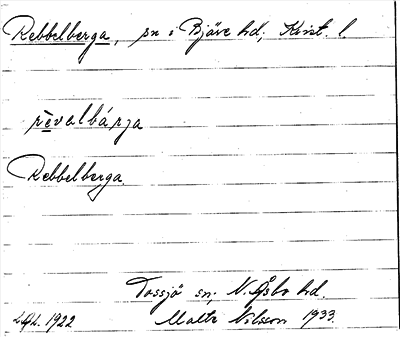 Rebbelberga, sn i Bjäre hd, Krist. l.
rèvalbárja
Rebbelberga.
Tossjö sn; N. Åsbo hd.
1922 Malte Nilsson 1933.